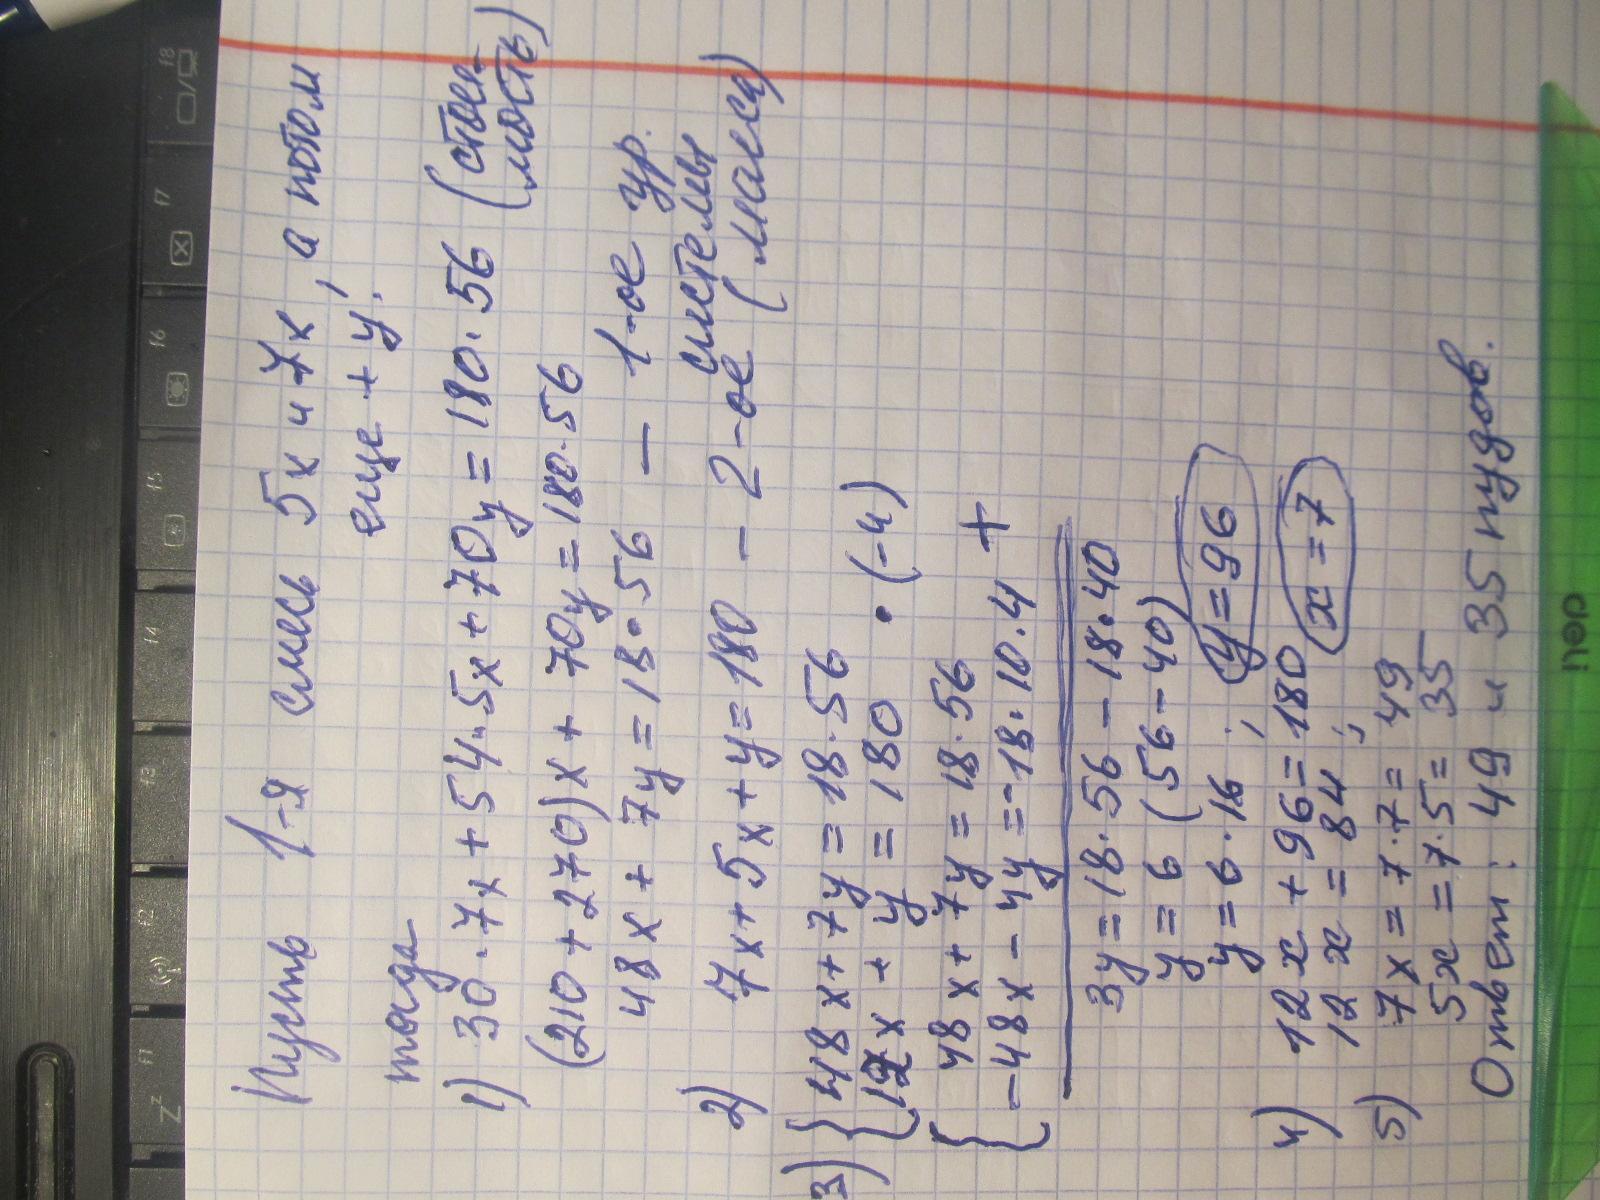 Пусть 1-я смесь 5x и 7x, а потом
еще + y.
тогда
1) 30·7x + 54·5x + 70y = 180·56 (стои-
мость)
(210 + 270)x + 70y = 180·56
48x + 7y = 18·56 — 1-ое ур.
системы
2) 7x + 5x + y = 180 — 2-ое (масса)
3) { 48x + 7y = 18·56
{ 12x + y = 180 ·(-4)
{ 48x + 7y = 18·56 +
{ -48x - 4y = -18·10·4
3y = 18·56 - 18·40
y = 6 (56 - 40)
y = 6·16 ; y = 96
4) 12x + 96 = 180
12x = 84 ; x = 7
5) 7x = 7·7 = 49
5x = 7·5 = 35
Ответ: 49 и 35 пудов.
f8
f7
f6
f5
f4
f3
f2
f1
Zz
deli